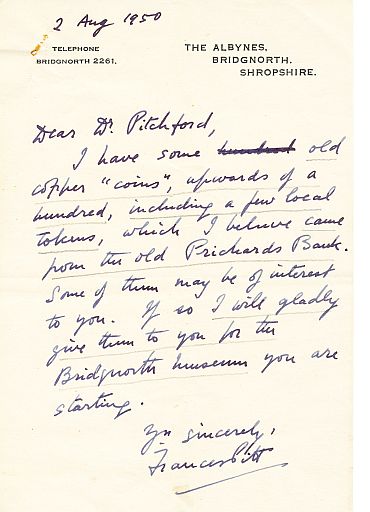 2 Aug 1950
TELEPHONE
BRIDGNORTH 2261.
THE ALBYNES,
BRIDGNORTH,
SHROPSHIRE.
Dear Dr. Pitchford,
I have some hundred old
copper "coins", upwards of a
hundred, including a few local
tokens, which I believe came
from the old Prichards Bank.
Some of them may be of interest
to you. If so I will gladly
give them to you for the
Bridgnorth Museum you are
starting.
Yrs sincerely,
Frances Pitt